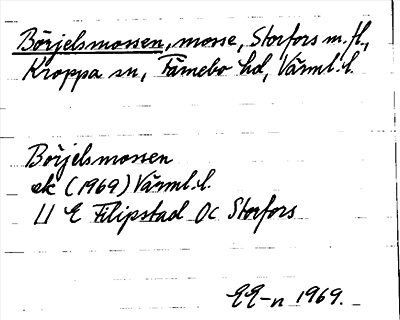 Börjelsmossen, mosse, Storfors m.fl.,
Kroppa sn, Färnebo hd, Värml. l.
Börjelsmossen
ek (1969) Värml. l.
11 E Filipstad OC Storfors
EE-n 1969.